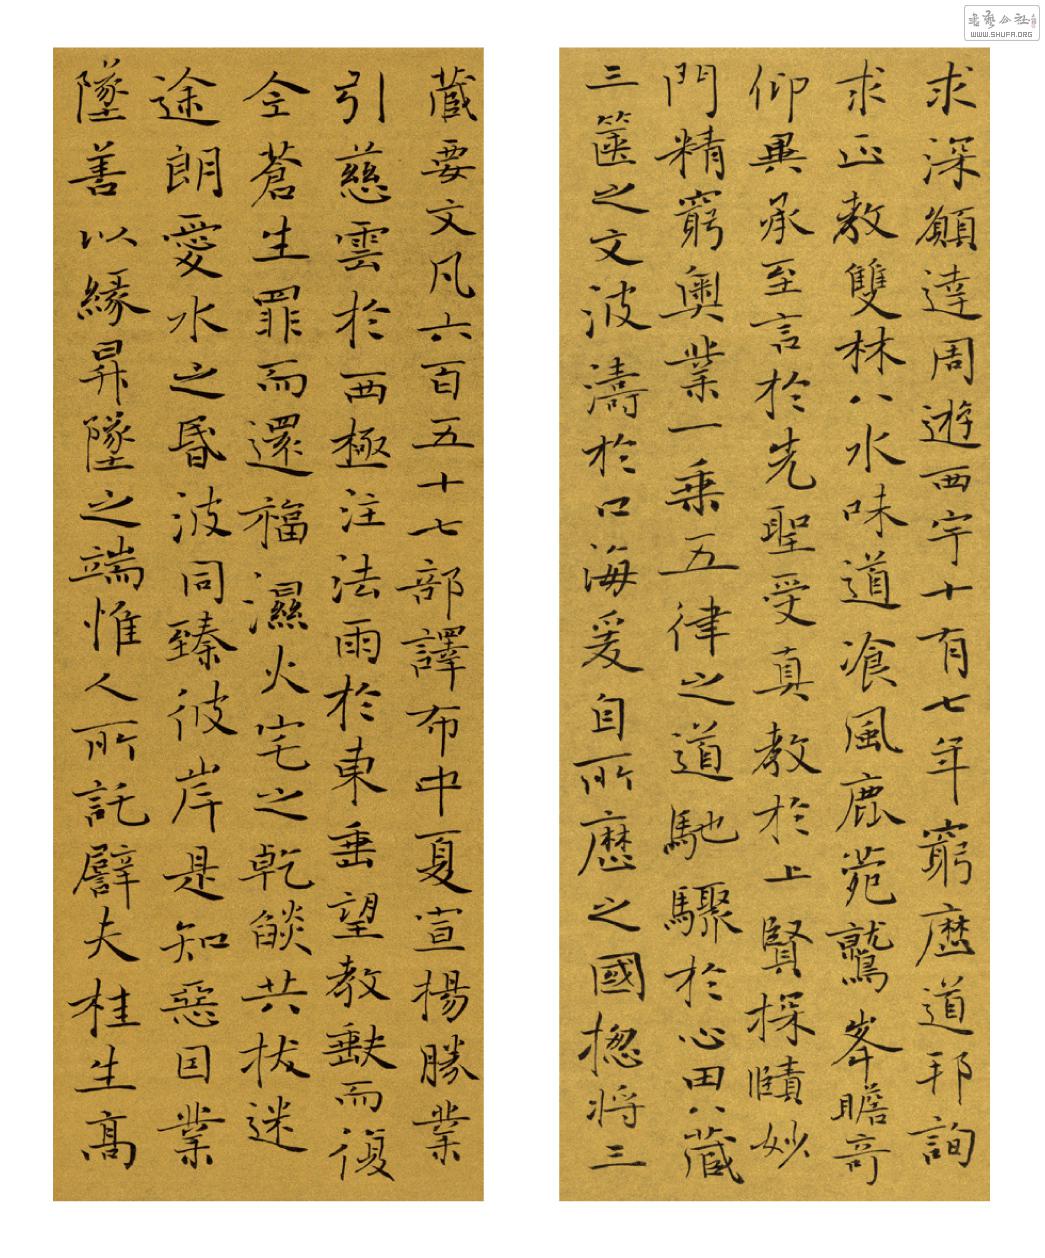 书艺公社
WWW.SHUFA.ORG
求深願達周遊西宇十有七年窮歷道邦詢
求正教雙林八水味道飡風鹿菀鷲峯瞻奇
仰異承至言於先聖受真教於上賢探賾妙
門精窮奧業一乗五律之道馳驟於心田八藏
三篋之文波濤於口海爰自所歷之國揔將三
藏要文凡六百五十七部譯布中夏宣揚勝業
引慈雲於西極注法雨於東垂聖教缺而復
全蒼生罪而還福濕火宅之乾焰共拔迷
途朗愛水之昏波同臻彼岸是知惡因業
墜善以緣昇昇墜之端惟人所託譬夫桂生高